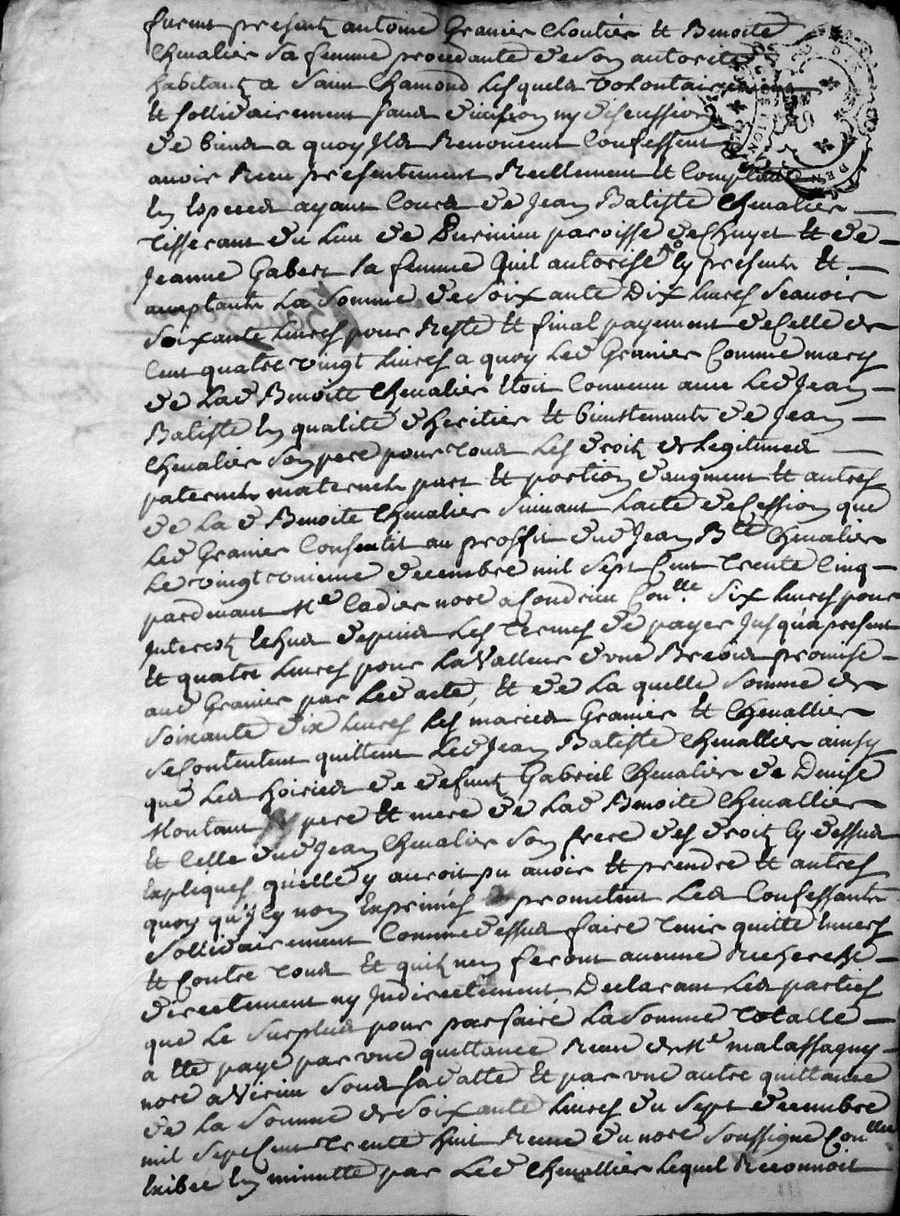 furent presents antoine Granier Cloutier et Benoite
Chevalier sa femme procedante de son autorité
habitants a Saint Chamond lesquels volontairement
et sollidairement sans division ny discussion
de biens a quoy Ils Renoncent Confessent
avoir Receu presentement Reellement et Comptant
En Especes ayant Cours de Jean Batiste Chevalier
Tisserant du Lieu de paroisse de Chuyet et de
Jeanne Gabert sa femme quil autorise Cy presents et
acceptants La Somme de Soixante Dix Livres Scavoir
Soixante Livres pour Reste et final payement de Celle de
Cent quatre vingt Livres a quoy Led Granier Comme mary
de Lad Benoite Chevalier Etoit Convenu avec Led Jean
Batiste En qualité dheritier et bientenants de Jean
Chevalier Son pere pour Tous Les droits de Legitimes
paternels maternels part et portion daugment et autres
de La d Benoite Chevalier Suivant Lacte de Cession que
Led Granier Consentit au proffit dud Jean Bte Chevalier
Le vingt decembre mil Sept Cent Trente Cinq
pardevant Me Cadier nore a Condrieu Conlle. Six Livres pour
Interests Echus depuis Les Termes de payer Jusqu'a present
et quatre Livres pour La Valleur dune Brebis promise
aud Granier par Led acte, et de La quelle Somme de
Soixante dix Livres les mariés Granier et Chevallier
se Contentent quittent Led Jean Batiste Chevallier ainsy
que Les hoiries de defunts Gabriel Chevalier de Denise
Montant pere et mere de Lad Benoite Chevallier
et Celle dud Jean Chevalier Son frere des droits Cy dessus
Expliqués qu'elle y auroit pu avoir et prendre et autres
quoy qu'Icy non Exprimés promettent Les Confessants
Sollidairement Comme dessus faire Tenir quitte Envers
et Contre Tous et quils nen feront aucune Recherche
directement ny Indirectement Declarant Les parties
que Le Surplus pour parfaire La Somme Totalle
a Eté payé par une quittance Reçue de Me malassagny
nore a Virieu Sous Sa datte et par une autre quittance
de La Somme de Soixante Livres du Sept decembre
mil Sept Cent Trente huit Recue du nore Soussigné Conlle
Exibee En minutte par Led Chevallier Lequel Reconnoit